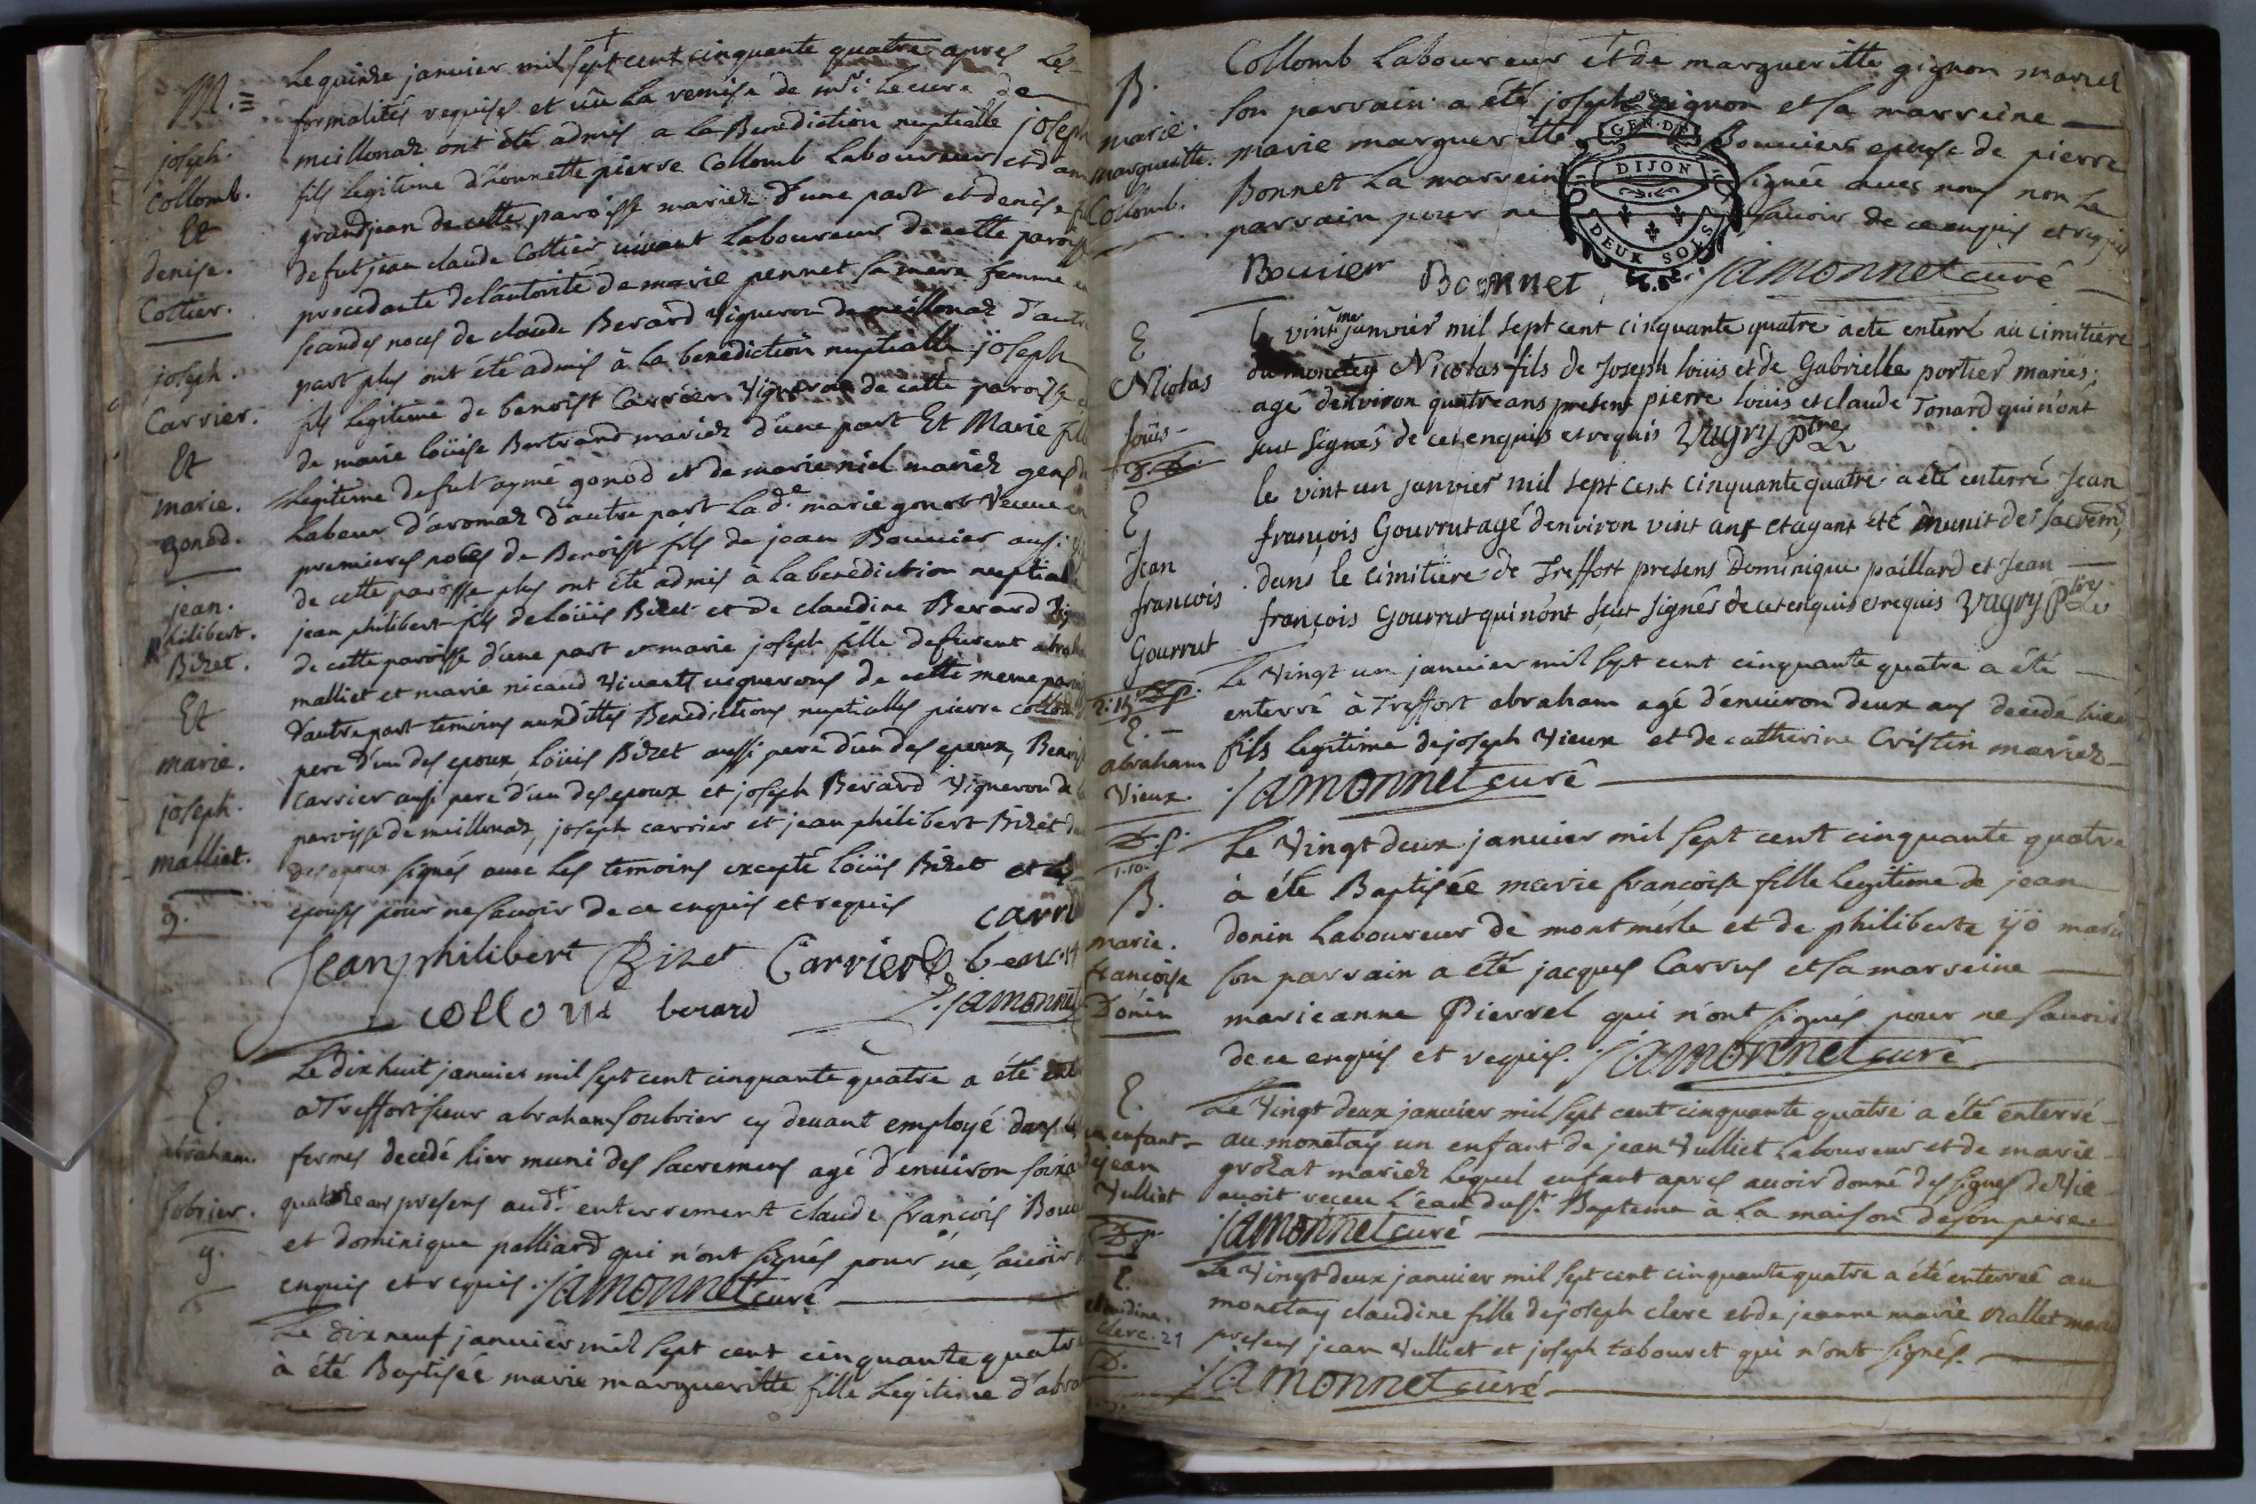 M.
joseph.
Collomb.
Et
denise.
Cottier.
joseph.
Carrier.
Et
marie.
gonod.
jean.
philibert.
Bizet.
Et
marie.
joseph.
malliet.
g.
Le quinze janvier mil sept cent cinquante quatre apres les
formalités requises et vû la remise de mr. Le curé de
meillonaz ont été admis a la Benediction nuptialle joseph
fils legitime d'honnette pierre Collomb Laboureur et d'ann
grandjean de cette paroisse mariez d'une part et denise fil
de fut jean claude Cottier vivant Laboureur de cette paroiss
procedante de l'autorité de marie pennet sa mere femme en
secondes noces de claude Berard vigneron de meillonaz d'autre
part plus ont été admis à la benediction nuptialle joseph
fils legitime de benoist Carrier vigneron de cette paroisse
de marie loüise Bertrand mariez d'une part Et Marie fille
Legitime de fut aymé gonod et de marie niel mariez gens de
Labeur d'aromaz d'autre part la de. marie gonod veuve en
premieres noces de Benoist fils de jean Bouvier aussi
de cette paroisse plus ont été admis à la benediction nuptialle
jean philibert fils de loüis Bizet et de claudine Berard vig
de cette paroisse d'une part et marie joseph fille de furent abraham
malliet et marie nicaud vivants vignerons de cette meme paroi
d'autre part temoins auxdittes Benedictions nuptialles pierre collomb
pere d'un des epoux, loüis Bizet aussi pere d'un des epoux, Benoist
Carrier aussi pere d'un des epoux et joseph Berard vigneron de la
paroisse de meillonaz, joseph carrier et jean philibert Bizet deux
des epoux signés avec les temoins excepté loüis Bizet et les
epouses pour ne savoir de ce enquis et requis
carri
Jean philibert Bizet Carrier benoit
collomb berard jamonnet
E.
abraham.
Sobrier.
g.
Le dix huit janvier mil sept cent cinquante quatre a été ent
a Treffort sieur abraham soubrier cy devant employé dans les
fermes decedé hier muni des sacremens agé d'environ soixa
quatorze ans presens audt. enterrement claude françois Bou
et dominique palliard qui n'ont signés pour ne savoir
enquis et requis. jamonnet curé
Le dix neuf janvier mil sept cent cinquante quatre
à été Baptisée marie margueritte fille Legitime d'abra
B.
marie.
margueritte.
Collomb.
Collomb Laboureur et de margueritte gignon mariez
son parrain a été joseph gignon et sa marreine
marie margueritte Bouvier epouse de pierre
Bonnet la marreine signée avec nous non le
parrain pour ne savoir de ce enquis et requis
GEN. DE
DIJON
DEUX SOLS
Bouvier Bonnet jamonnet curé
E
Nicolas
Loüis
le vintme janvier mil sept cent cinquante quatre a ete enterré au cimitiere
du monetay Nicolas fils de Joseph loüis et de Gabrielle portier mariés,
agé d'environ quatre ans present pierre loüis et claude Tonard qui n'ont
sut signés de cet enquis et requis Vugry ptre
E
Jean
francois
Gourrut
le vint un janvier mil sept cent cinquante quatre a été enterré Jean
françois Gourrut agé d'environ vint ans et ayant été munit des sacrem,
dans le cimitiere de Treffort presens Dominique paillard et Jean
françois Gourrut qui n'ont sçut signés de cet enquis et requis Vugry ptre
E.
abraham
Vieux.
Le Vingt un janvier mil sept cent cinquante quatre a été
enterré à Treffort abraham agé d'environ deux ans decedé hier
fils Legitime de joseph Vieux et de catherine Cristin mariez
jamonnet curé
B.
marie.
françoise
Donin
Le Vingt deux janvier mil sept cent cinquante quatre
à été Baptisée marie françoise fille legitime de jean
donin Laboureur de montmerle et de philiberte ijö mari
son parrain a été jacques Carrus et sa marreine
marieanne Pierrel qui n'ont signés pour ne savoir
de ce enquis et requis. jamonnet curé
E.
un enfant
de jean
Vulliet
Le Vingt deux janvier mil sept cent cinquante quatre a été enterré
au monetay un enfant de jean Vulliet Laboureur et de marie
grozat mariez lequel enfant apres avoir donné des signes de vie
avoit receu l'eau du st. Bapteme à la maison de son pere
jamonnet curé
E.
claudine.
Clerc. 21
D.
Le Vingt deux janvier mil sept cent cinquante quatre a été enterreé au
monetay claudine fille de joseph clerc et de jeanne marie Rallet mariez
presens jean Vulliet et joseph tabouret qui n'ont signés.
jamonnet curé